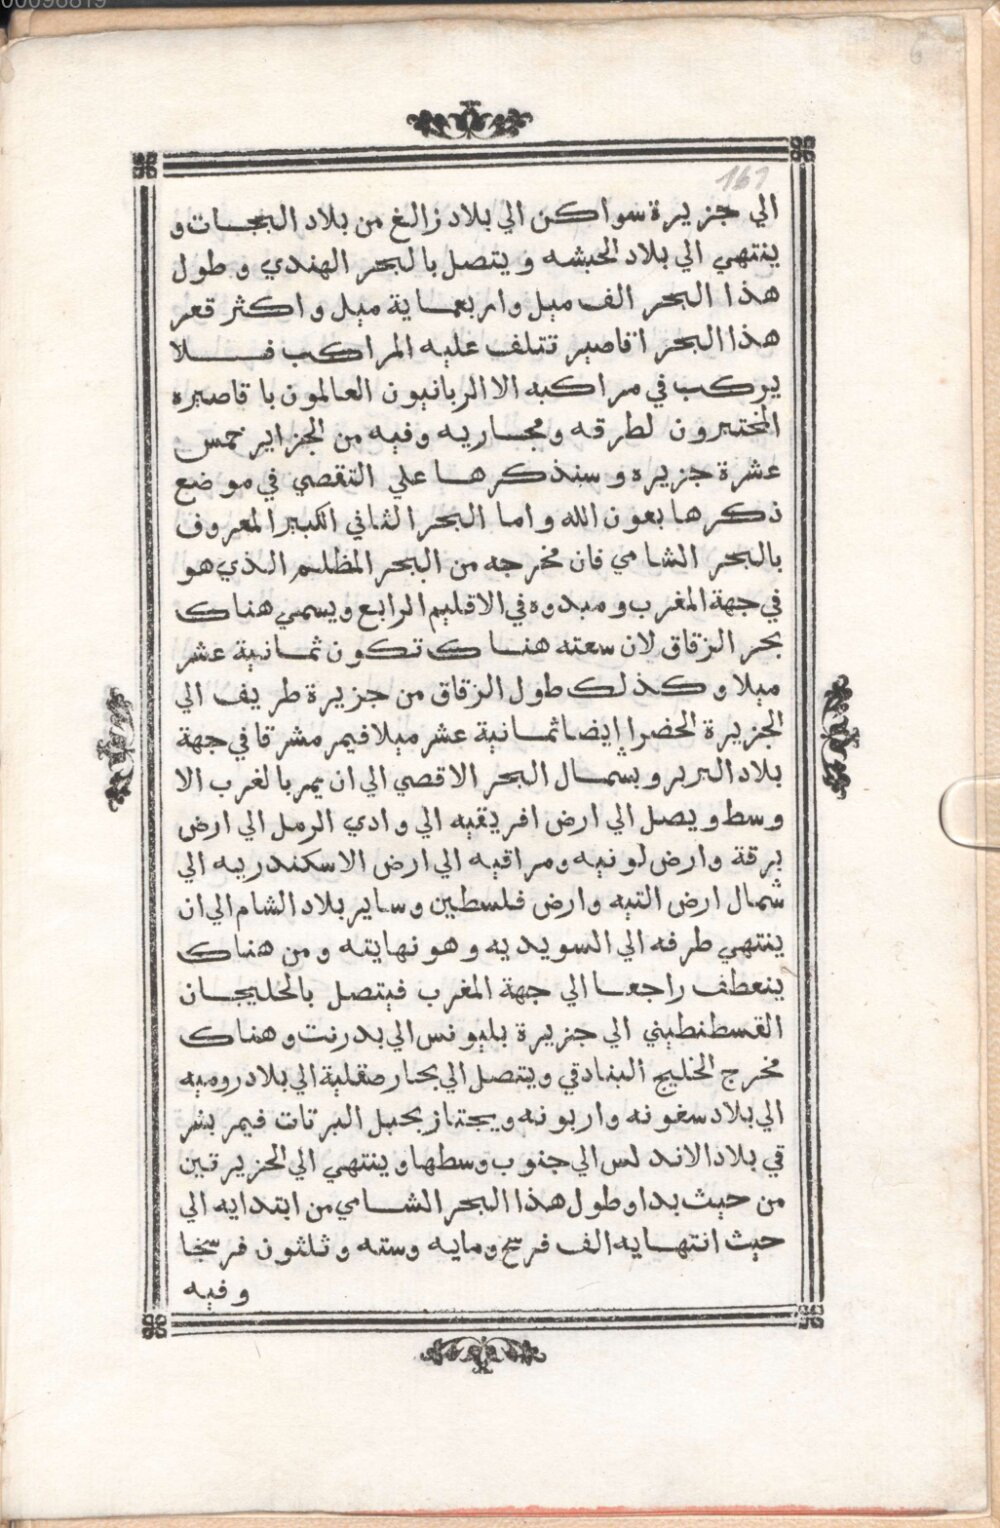 00098819
6
161
الي جزيرة سواكن الي بلاد زالغ من بلاد البجات و
ينتهي الي بلاد الحبشه ويتصل بالبحر الهندي وطول
هذا البحر الف ميل واربعماية ميل واكثر قعر
هذا البحر اقاصير تتلف عليه المراكب فلا
يركب في مراكبه الا الربانيون العالمون باقاصيره
المختبرون لطرقه ومجاريه وفيه من الجزاير خمس
عشرة جزيره وسنذكرها علي التقصي في موضع
ذكرها بعون الله واما البحر الثاني الكبير المعروف
بالبحر الشامي فان مخرجه من البحر المظلم الذي هو
في جهة المغرب ومبدوه في الاقليم الرابع ويسمي هناك
بحر الزقاق لان سعته هناك تكون ثمانية عشر
ميلا وكذلك طول الزقاق من جزيرة طريف الي
الجزيرة الخضرا ايضا ثمانية عشر ميلا فيمر مشرقا في جهة
بلاد البربر وبسمال البحر الاقصي الي ان يمر بالغرب الا
وسط ويصل الي ارض افريقيه الي وادي الرمل الي ارض
برقة وارض لونيه ومراقيه الي ارض الاسكندريه الي
شمال ارض التيه وارض فلسطين وساير بلاد الشام الي ان
ينتهي طرفه الي السويديه وهو نهايته ومن هناك
ينعطف راجعا الي جهة المغرب فيتصل بالخليجان
القسطنطيني الي جزيرة بليونس الي بدرنت وهناك
مخرج الخليج البنادقي ويتصل الي بحار صقلية الي بلاد روميه
الي بلاد سغونه واربونه ويجتاز بحبل البرتات فيمر بشر
قي بلاد الاندلس الي جنوب وسطها وينتهي الي الحزيرتين
من حيث بدا وطول هذا البحر الشامي من ابتدايه الي
حيث انتهايه الف فرسخ ومايه وسته وثلثون فرسخا
وفيه